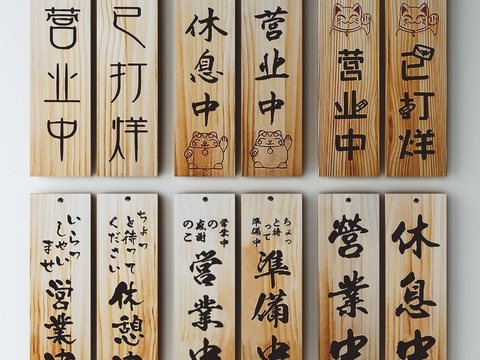 营业中
已打烊
休息中
营业中
营业中
已打烊
いらっ
しゃい
ませ
営業中
ちょっ
と待って
ください
休憩中
営業中
の感謝
営業中
ちょっ
と待って
準備中
準備中
營業中
休息中